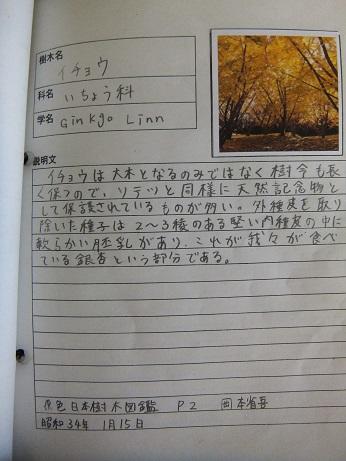 樹木名
イチョウ
科名 いちょう科
学名 Ginkgo Linn
説明文
イチョウは大木となるのみではなく樹令も長
く保つので、ソテツと同様に天然記念物と
して保護されているものが多い。外種皮を取り
除いた種子は2〜3稜のある堅い内種皮の中に
軟らかい胚乳があり、これが我々が食べ
ている銀杏という部分である。
原色日本樹木図鑑 P2 岡本省吾
昭和34年 1月15日